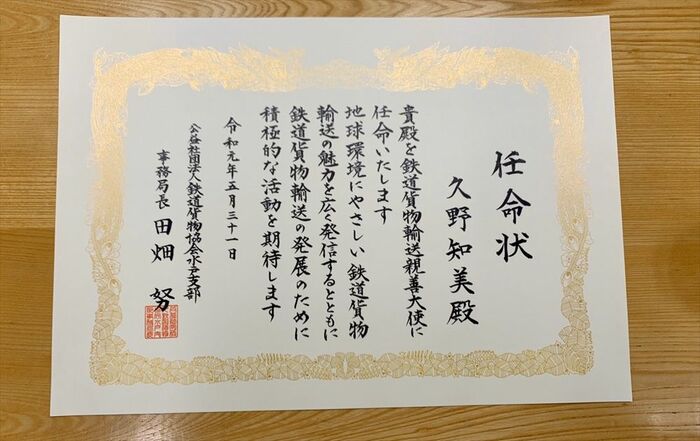 任命状
久野知美殿
貴殿を鉄道貨物輸送親善大使に
任命いたします
地球環境にやさしい鉄道貨物
輸送の魅力を広く発信するとともに
鉄道貨物輸送の発展のために
積極的な活動を期待します
令和元年五月三十一日
公益社団法人鉄道貨物協会水戸支部
事務局長 田畑 努